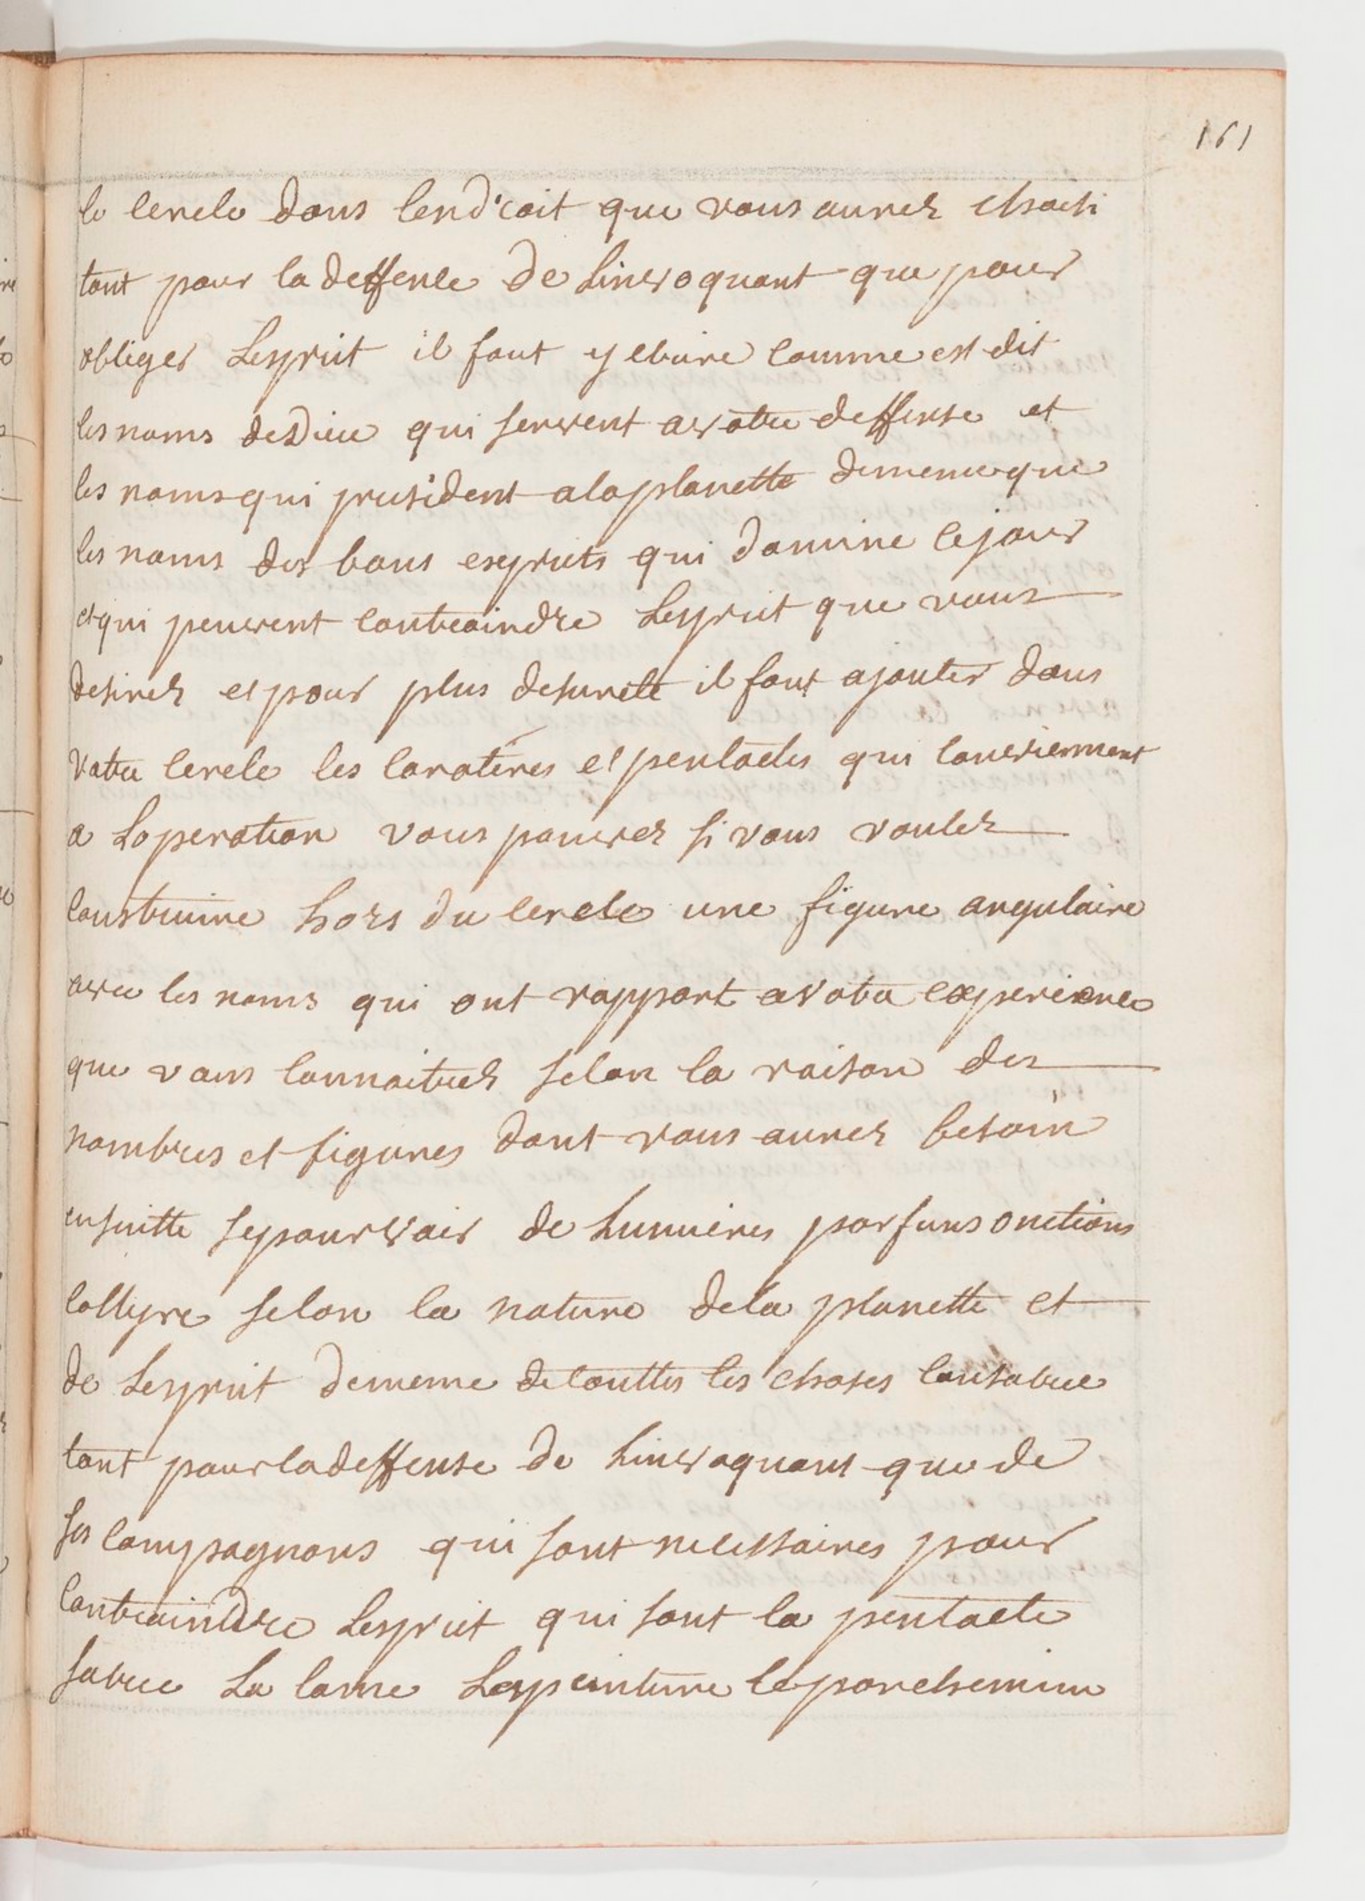 161
le cercle dans lend'roit que vous aurez choisi
tant pour la deffence de Linvoquant que pour
obliger Lesprit il faut y ecrire comme est dit
les noms de Dieu qui servent a votre deffense et
les noms qui president a la planette de meme que
les noms des bons esprits qui domine le jour
et qui peuvent contraindre Lesprit que vous
desirez et pour plus de sureté il faut ajouter dans
votre cercle les caratéres et pentacles qui conviennent
a Loperation vous pouvez si vous voulez
construire hors du cercle une figure angulaire
avec les noms qui ont rapport a votre experience
que vous connaitrez selon la raison des
nombres et figures dont vous aurez besoin
ensuitte se pourvoir de Lumieres parfuns onctions
collyre selon la nature de la planette et
de Lesprit de meme de touttes les choses consacree
tant pour la deffense de Linvoquant que de
ses compagnons qui sont necessaires pour
contraindre Lesprit qui sont la pentacle
sacree La lame La peinture le parchemin